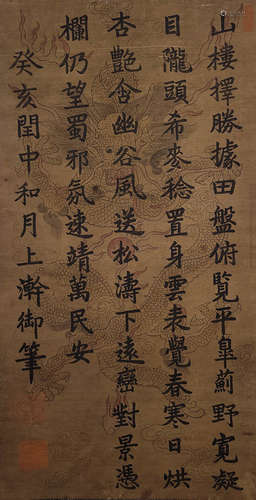 山樓擇勝據田盤俯覽平臯薊野寬凝
目隴頭希麥稔置身雲表覺春寒日烘
杏艷含幽谷風送松濤下遠巒對景憑
欄仍望蜀邪氛速靖萬民安
癸亥閏中和月上澣御筆